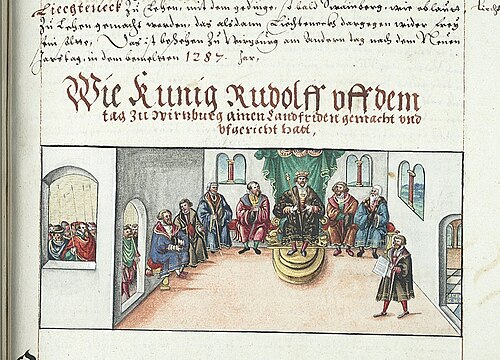 Liechteneck zu Lehen, mit dem gedinge, ist bald Stramberg, wie oblaut
zu Lehen gemacht werden, das alsdan Liechteneck dargegen wider
sein solte, Das ist beschen zu Wirtzburg am andern tag nach dem Neuen
Jarstag, in dem bemelten 1287. Jar,
Wie Kunig Rudolff vff dem
tag zu wirtzburg ainen Landfriden gemacht vnd
vfgericht hatt,